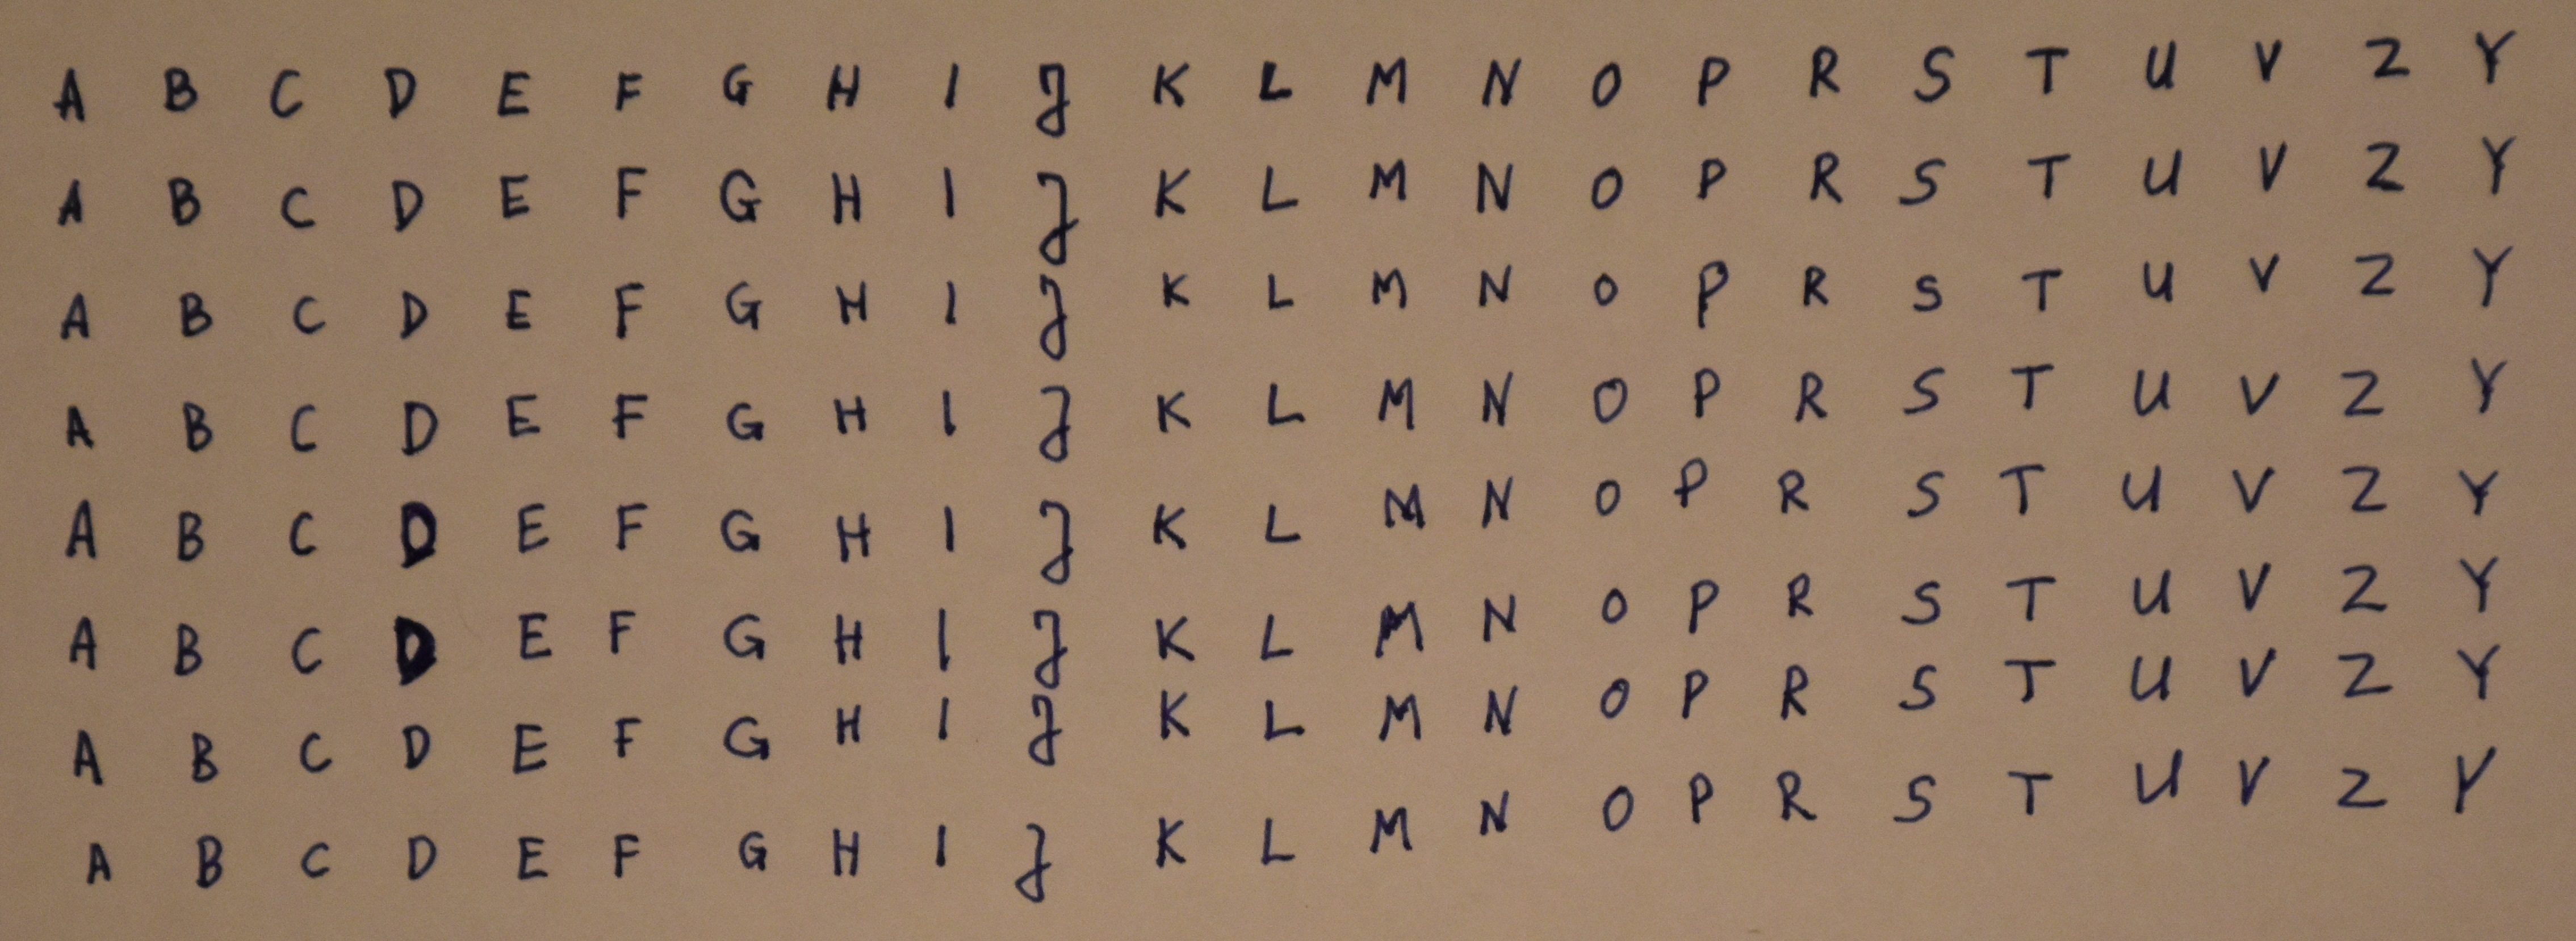 A B C D E F G H I J K L M N O P R S T U V Z Y
A B C D E F G H I J K L M N O P R S T U V Z Y
A B C D E F G H I J K L M N O P R S T U V Z Y
A B C D E F G H I J K L M N O P R S T U V Z Y
A B C D E F G H I J K L M N O P R S T U V Z Y
A B C D E F G H I J K L M N O P R S T U V Z Y
A B C D E F G H I J K L M N O P R S T U V Z Y
A B C D E F G H I J K L M N O P R S T U V Z Y